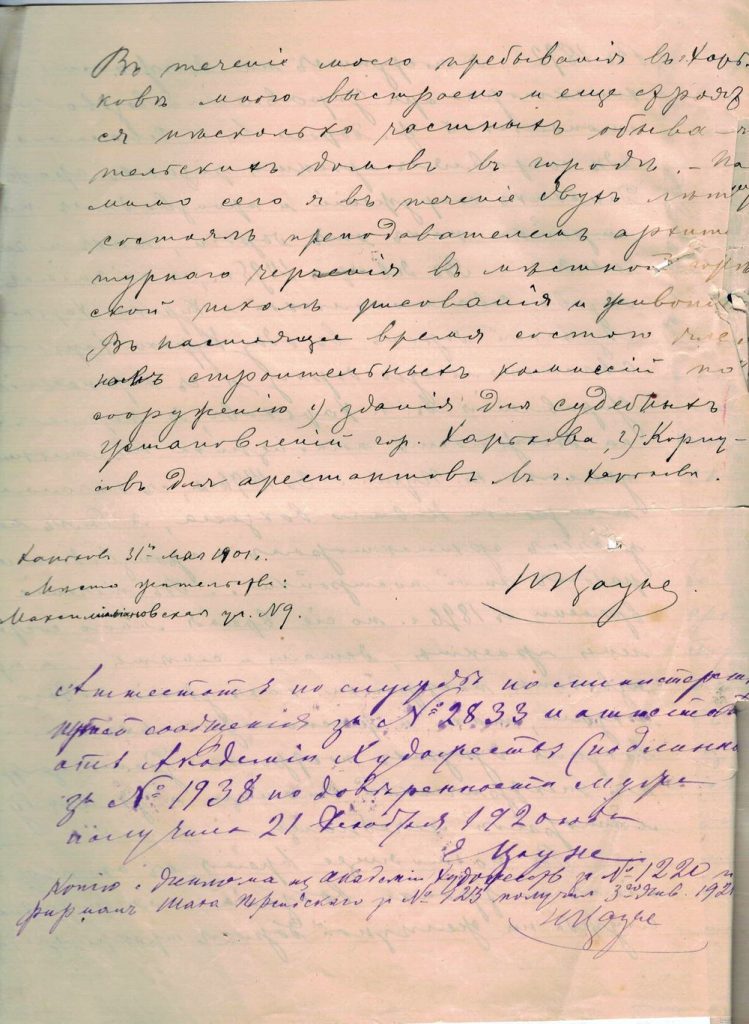 Въ теченіе моего пребыванія въ Харь-
ковѣ мною выстроено и еще строят
ся нѣсколько частныхъ обыва-
тельскихъ домовъ въ городѣ. - По
мимо сего я въ теченіе двухъ лѣтъ
состоялъ преподавателемъ архит
турнаго черченія въ мѣстной город
ской школѣ рисованія и живопи
Въ настоящее время состою чле
номъ строительныхъ комиссій по
сооруженію 1) зданія для судебныхъ
установленій гор. Харькова, 2) Корпу-
совъ для арестантовъ въ г. Харьковѣ.
Харьковъ 31го мая 1901 г.
Мѣсто жительства:
Максимильяновская ул. №9.
И Цауне.
Аттестатъ по службѣ по министерст
путей сообщенія за № 2833 и аттестат
отъ Академіи Художествъ (подлинны
за № 1938 по довѣренности мужа
получила 21 декабря 1920 года
Е Цауне
Копію с диплома из Академіи Художеств за № 1220 и
фирман шаха персидского за № 725 получил 3го янв. 192
И Цауне